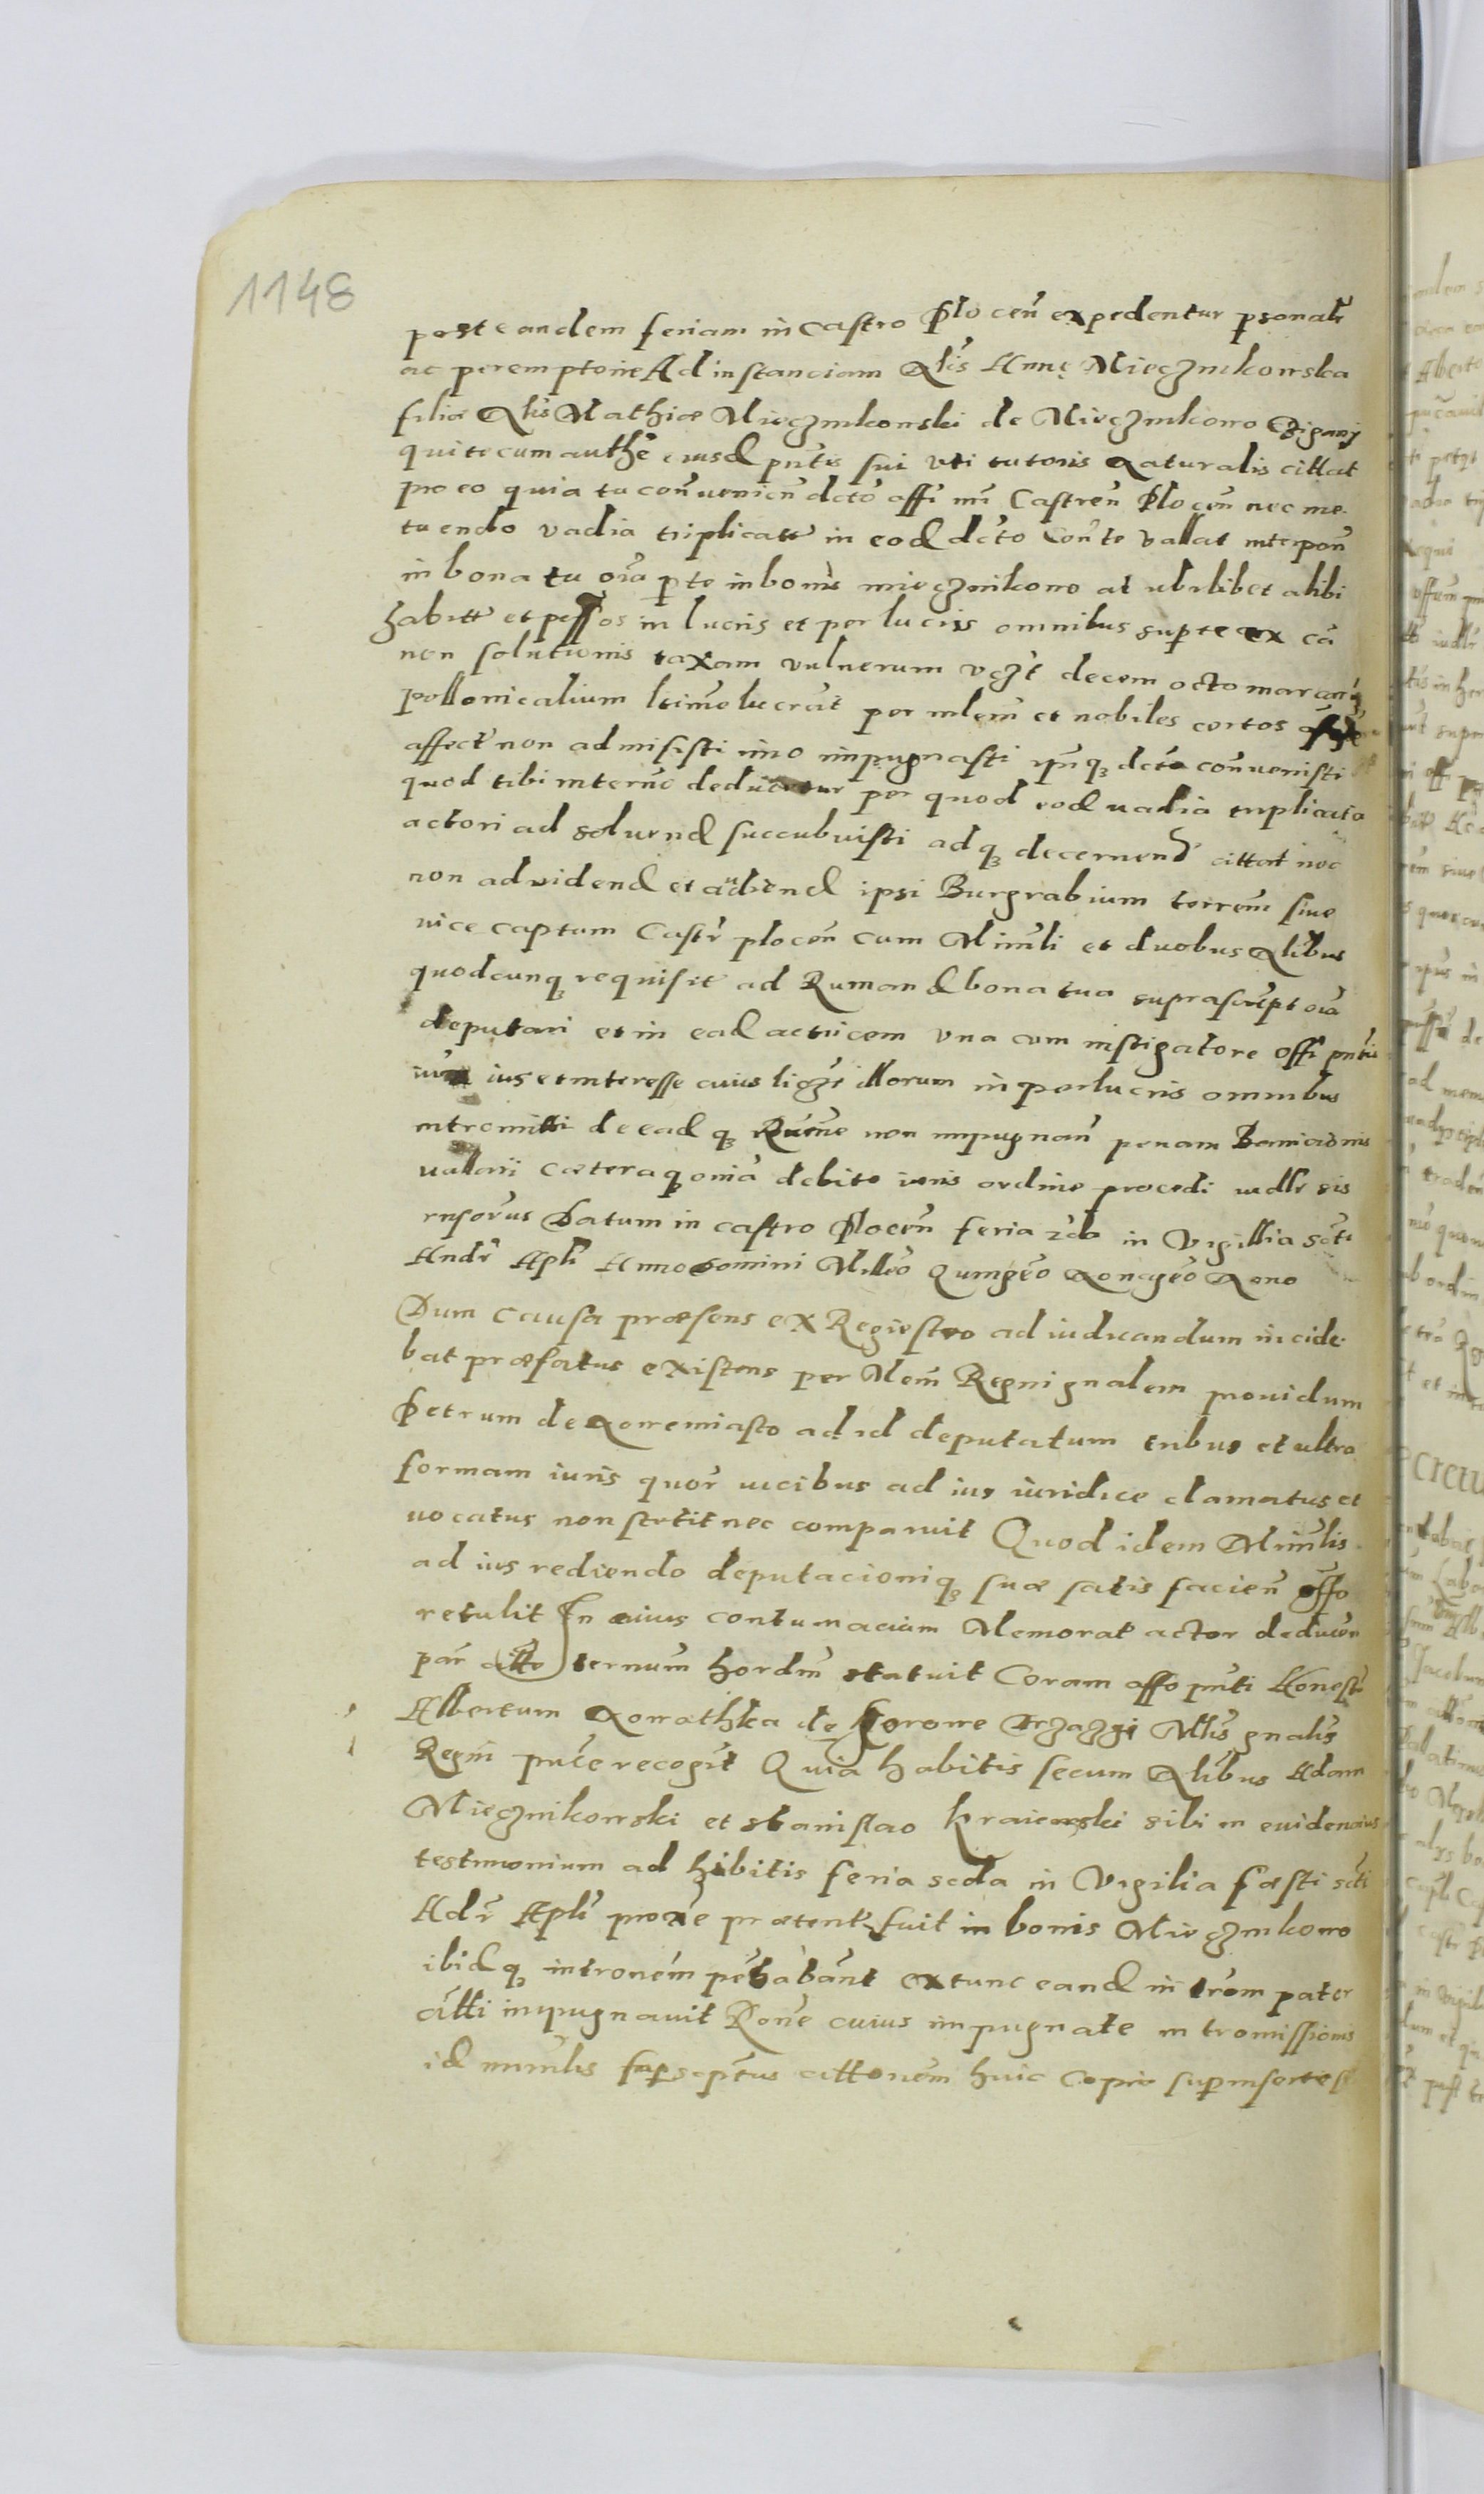 1148
post eandem feriam in Castro Plocen expedentur psonalr
ac peremptorie Ad instanciam Nlis Annę Miecznikowska
filiæ Nlis Mathiæ Miecznikowski de Miecznikowo Czigany
qui te cum authe eiusd pntis sui uti tutoris Naturalis cittat
pro eo quia tu convenien dcto offi mi Castren Plocen nec me-
tuendo vadia triplicatt in eod dcto conte vallat interpon
in bona tu oia p te in bonis miecznikowo at ubilibet alibi
habitt et possos in lucris et perlucris omnibus sup te ex ca
non solutionis taxam vulnerum vczt decem octo marcar
pollonicalium ltime lucrat per mlem et nobiles certos
affect non admisisti imo impugnasti ipnq dcto convenisti
quod tibi interne deducetur per quod eod vadia triplicata
actori ad soluend succubuisti ad q decernend cittat nec
non ad vidend et audiend ipsi Burgrabium terrem sive
vice captum Castr plocen cum Minrli et duobus Nlibus
quodcunq requisit ad Rumand bona tua suprascript oia
deputari et in ead actricem una cum instigatore offi pntis
ius et interesse cuius liczt illorum in perlucris omnibus
intromitti de ead q Rume non impugnan penam Banicionis
vallari cæteraq omia debito iuris ordine procedi iudlr sis
rnsorus Datum in castro Plocen feria 2da in Vigillia Scti
Andr Apli Anno Domini Milleo Quingeo Nonageo Nono
Dum causa præsens ex Regiestro ad iudicandum incide-
bat præfatus existens per Mem Regni gnalem providum
Petrum de Nowemiasto ad id deputatum tribus et ultra
formam iuris quor vicibus ad ius iuridice clamatus et
vocatus non stetit nec comparuit Quod idem Minrlis
ad ius rediendo deputacioniq suæ satis facien offo
retulit In cuius contumaciam Memorat actor deducen
par citto ternum hordin statuit Coram offo pnti Honest
Albertum Nowathka de Gorowe Trzazgi Mlis gnalis
Regni pnte recogit Quia habitis secum Nlibus Adam
Miecznikowski et Stanislao Kraiewski sibi in evidencius
testimonium ad hibitis feria scda in Vigilia fæsti scti
Adr Apli proxe prætent fuit in bonis Miecznikowo
ibidq intronem pethabant extunc eand introm pater
citti inpugnavit Rone cuius impugnate intromissionis
id minrlis suprascptus cittonem huic copie supinserte